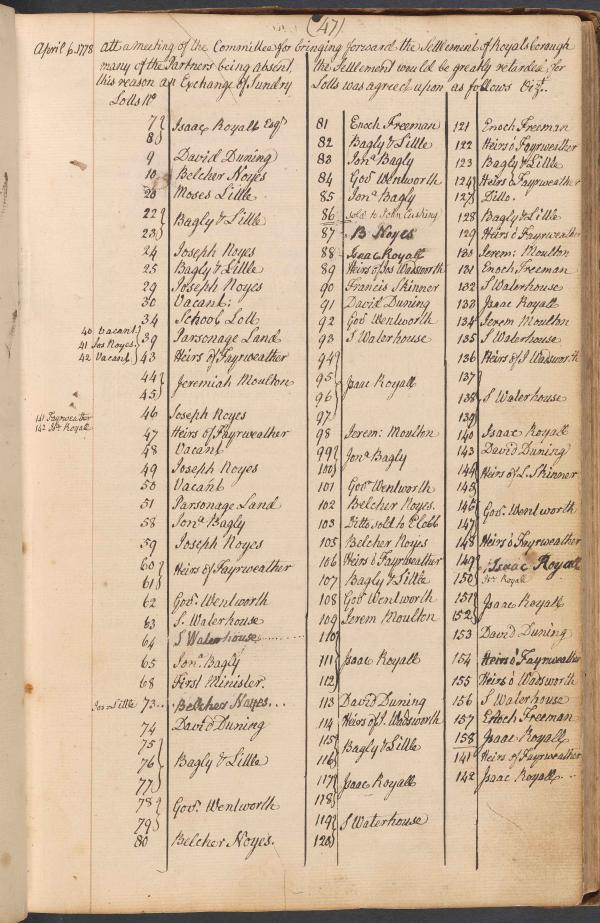 (47)
April 6. 1778 Att a meeting of the Committee for bringing forward the Settlement of Royalsborough
many of the Partners being absent, the Settlement would be greatly retarded for
this reason an Exchange of Sundry Lotts was agreed upon as follows Vizt.
Lotts No
7 }
8 } Isaac Royall Esqr
9 David Duning
10 Belcher Noyes
20 Moses Little
22 }
23 } Bagly & Little
24 Joseph Noyes
25 Bagly & Little
29 Joseph Noyes
30 Vacant:
34 School Lott
39 Parsonage Land
40 Vacant
41 Jos Noyes
42 Vacant
43 Heirs of Fayrweather
44 }
45 } Jeremiah Moulton
46 Joseph Noyes
141 Fayrweather
142 Isc Royall
47 Heirs of Fayrweather
48 Vacant
49 Joseph Noyes
50 Vacant
51 Parsonage Land
58 Jona Bagly
59 Joseph Noyes
60 }
61 } Heirs of Fayrweather
62 Govr Wentworth
63 S. Waterhouse
64 S Waterhouse
65 Jona Bagly
68 First Minister.
Jos Little 73 Belcher Noyes
74 David Duning
75 }
76 } Bagly & Little
77 }
78 }
79 } Govr Wentworth
80 Belcher Noyes.
81 Enoch Freeman
82 Bagly & Little
83 Jona Bagly
84 Govr Wentworth
85 Jona Bagly
86 sold to John Cushing
87 B Noyes
88 Isaac Royall
89 Heirs of Jos Wadsworth
90 Francis Skinner
91 David Duning
92 Govr Wentworth
93 S Waterhouse
94 }
95 }
96 } Isaac Royall
97 }
98 Jerem: Moulton
99 }
100 } Jona Bagly
101 Govr Wentworth
102 Belcher Noyes.
103 Ditto sold to E Cobb
105 Belcher Noyes
106 Heirs o Fayrweather
107 Bagly & Little
108 Govr Wentworth
109 Jerem Moulton
110 }
111 } Isaac Royall
112 }
113 David Duning
114 Heirs of J. Wadsworth
115 }
116 } Bagly & Little
117 }
118 } Isaac Royall
119 }
120 } S Waterhouse
121 Enoch Freeman
122 Heirs o Fayrweather
123 Bagly & Little
124 Heirs o Fayrweather
127 Ditto.
128 Bagly & Little
129 Heirs o Fayrweather
130 Jerem: Moulton
131 Enoch Freeman
132 S Waterhouse
133 Isaac Royall
134 Jerem Moulton
135 S Waterhouse
136 Heirs of J Wadsworth
137 }
138 } S Waterhouse
139 }
140 Isaac Royall
143 David Duning
144 }
145 } Heirs of L. Skinner
146 }
147 } Govr Wentworth
148 Heirs o Fayrweather
149 }
150 } Isaac Royall
Isc Royall
151 }
152 } Isaac Royall
153 David Duning
154 Heirs o Fayrweather
155 Heirs o Wadsworth
156 S Waterhouse
157 Enoch Freeman
158 Isaac Royall
141 Heirs of Fayrweather
142 Isaac Royall